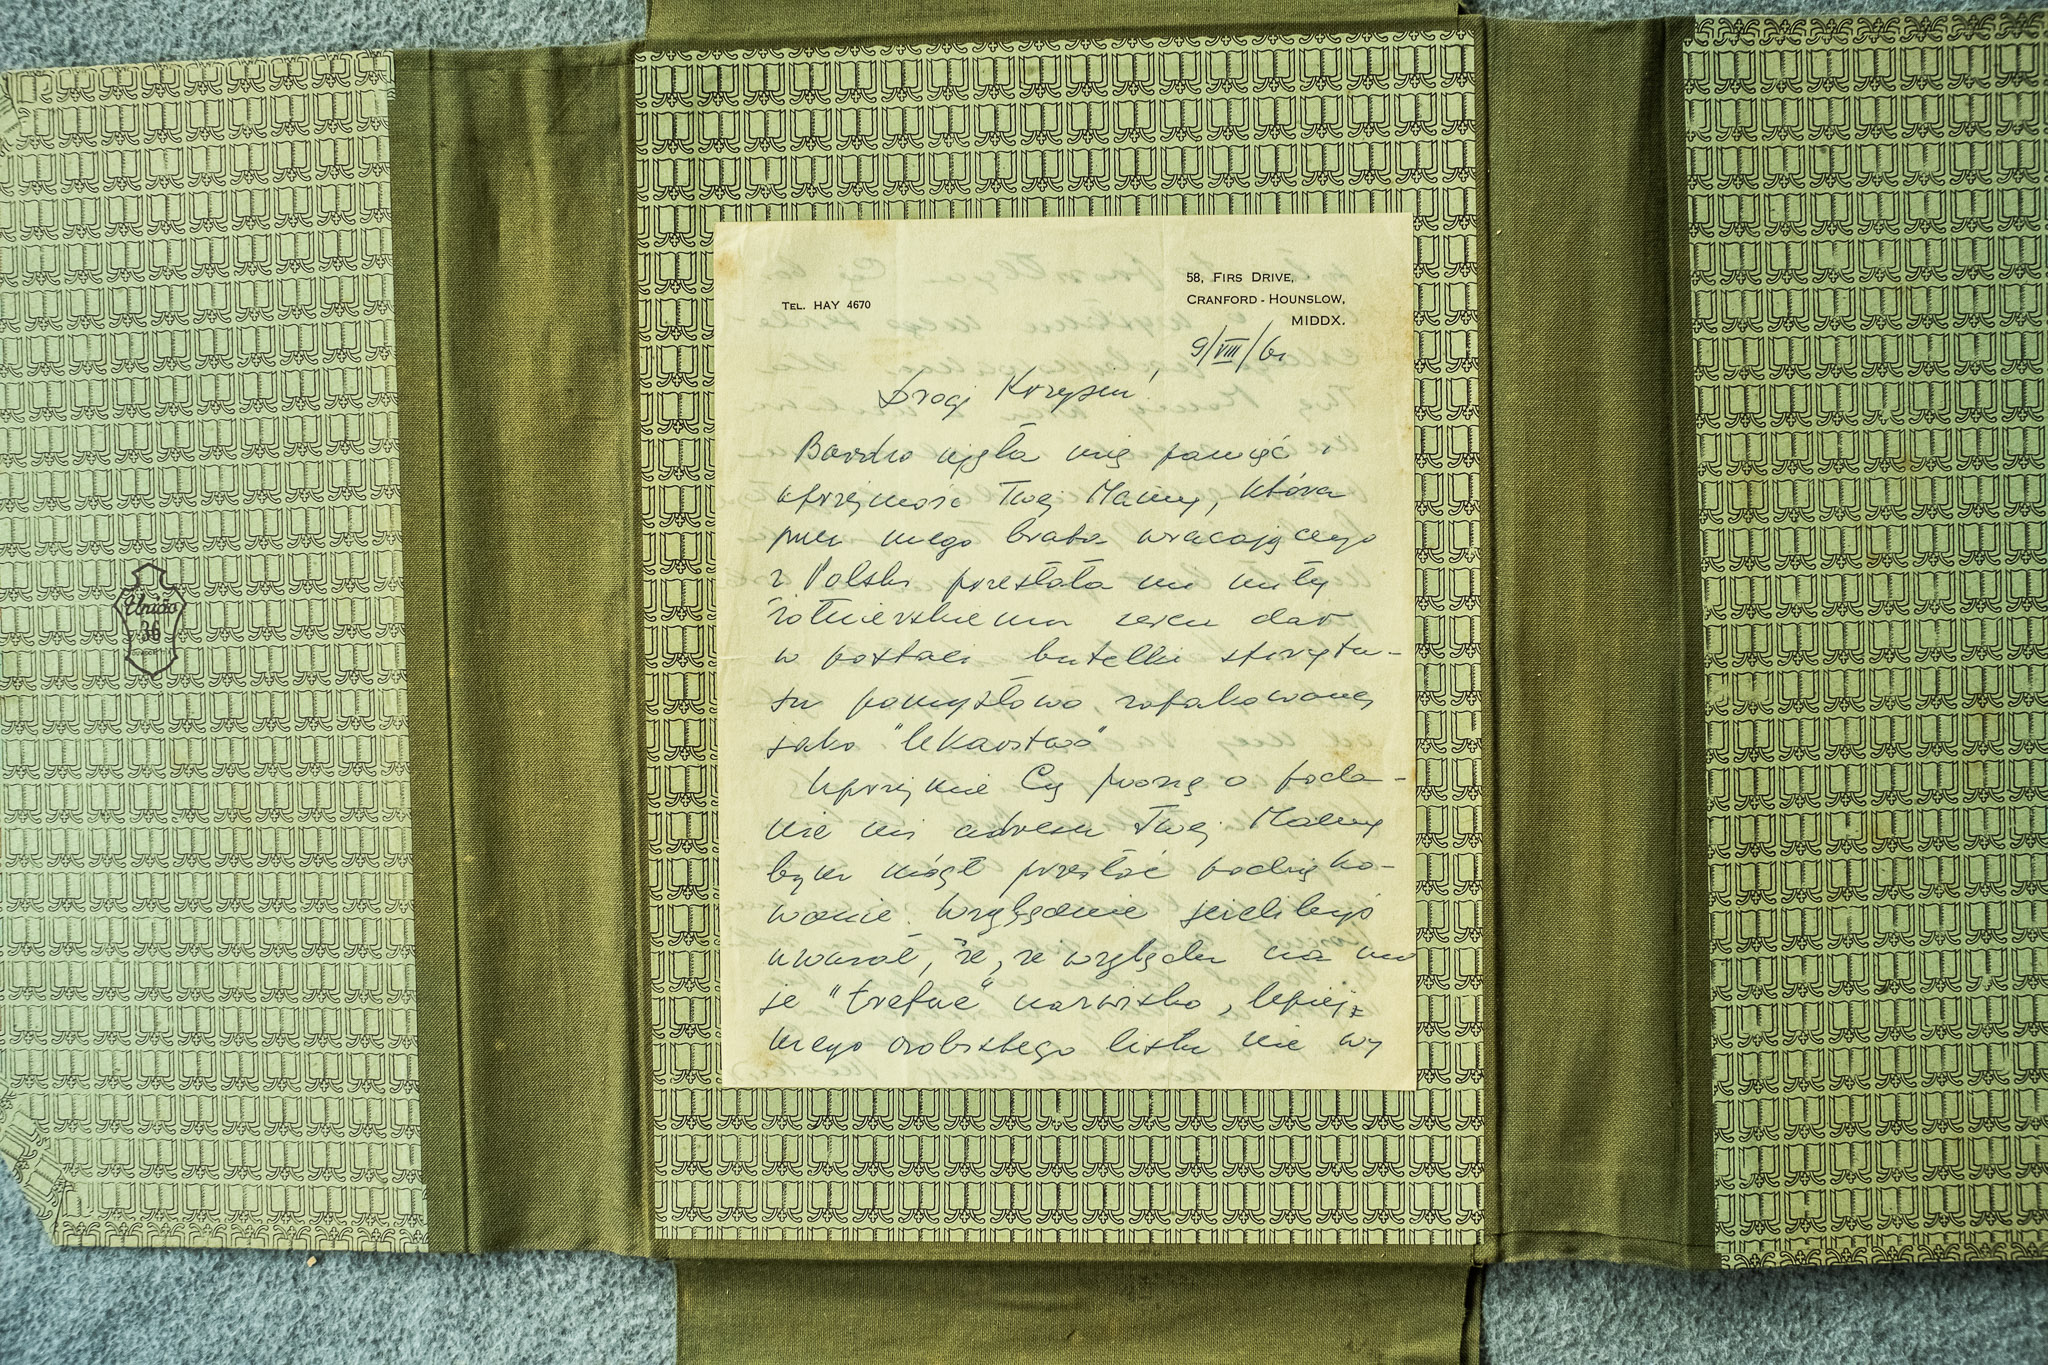 58, FIRS DRIVE,
TEL. HAY 4670
CRANFORD - HOUNSLOW,
MIDDX.
9/VIII/61
Drogi Krzysiu!
Bardzo ujęła mię pamięć i
uprzejmość Twej Mamy, która
przez mego brata wracającego
z Polski przesłała mi miły
żołnierskiemu sercu dar
w postaci butelki spirytu-
su pomysłowo, zapakowanej
jako "lekarstwo"
Uprzejmie Cię proszę o poda-
nie mi adresu Twej Mamy
bym mógł przesłać podzięko-
wanie. Względnie jeżelibyś
uważał, że, ze względu na mo
je "trefne" nazwisko, lepiej
mego osobistego listu nie wy
Unido
36